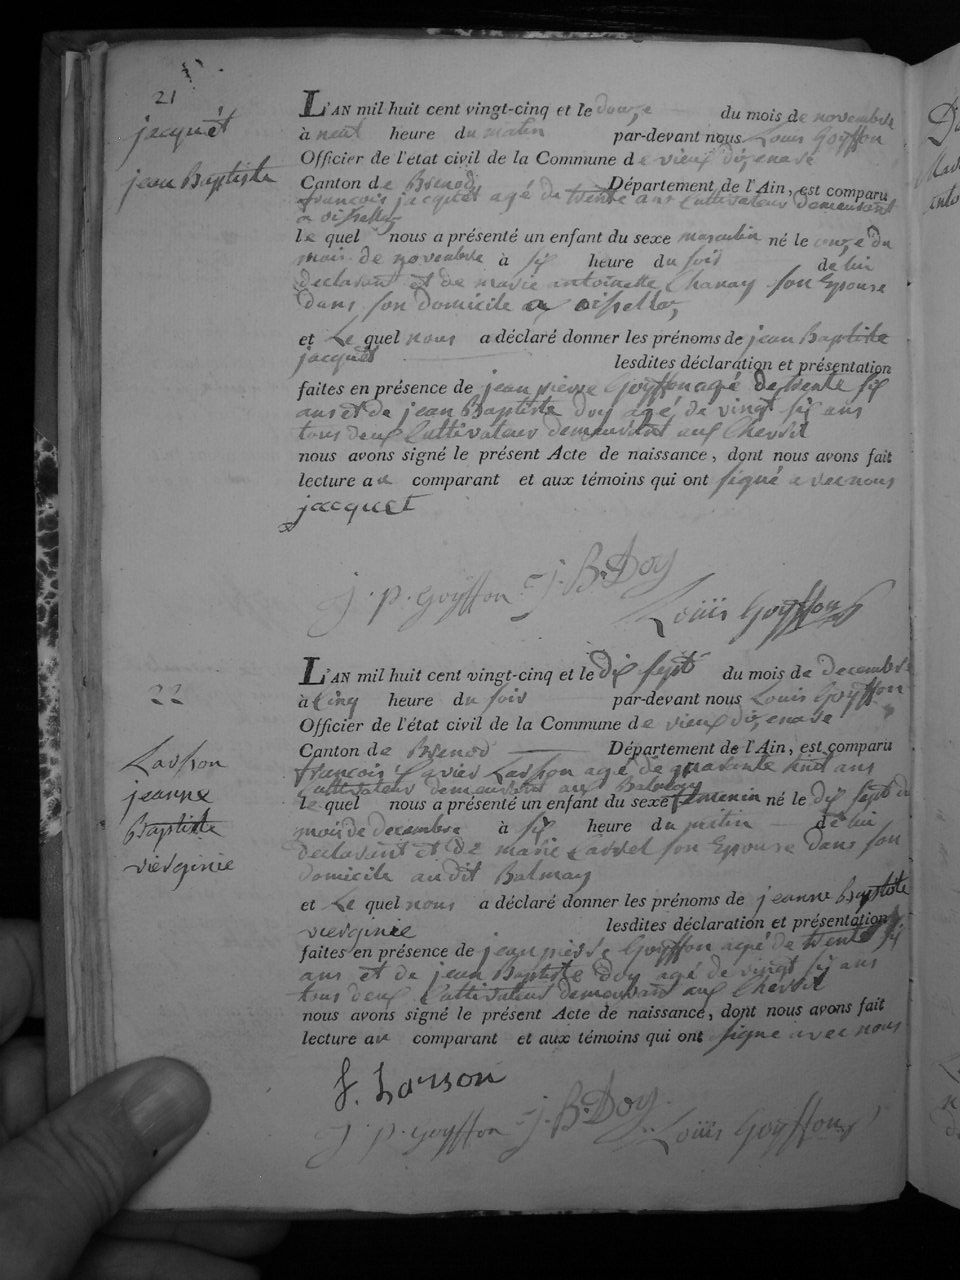 21
jacquet
jean Baptiste
L'AN mil huit cent vingt-cinq et le douze du mois de novembre
à neuf heure du matin par-devant nous Louis Goyffon
Officier de l'état civil de la Commune de vieux dizenave
Canton de Brenod Département de l'Ain, est comparu
françois jacquet agé de trente ans Cultivateur demeurant
a oissellaz
le quel nous a présenté un enfant du sexe masculin né le onze du
mois de novembre à six heure du soir de lui
declarant et de marie antoinette Chanay son Epouse
dans son domicile a oissellaz
et Le quel nous a déclaré donner les prénoms de jean Baptiste
jacquet lesdites déclaration et présentation
faites en présence de jean pierre Goyffon agé de trente six
ans et de jean Baptiste Doy agé de vingt six ans
tous deux Cultivateur demeurant aux
nous avons signé le présent Acte de naissance, dont nous avons fait
lecture au comparant et aux témoins qui ont signé avec nous
jacquet
J. P. Goyffon J. B. Doy
Louis Goyffon
22
Lasson
jeanne
Baptiste
vierginie
L'AN mil huit cent vingt-cinq et le dix sept du mois de decembre
à Cinq heure du soir par-devant nous Louis Goyffon
Officier de l'état civil de la Commune de vieux dizenave
Canton de Brenod Département de l'Ain, est comparu
françois Xavier Lasson agé de quarante huit ans
Cultivateur demeurant aux Balmay
le quel nous a présenté un enfant du sexe femenin né le dix sept du
mois de decembre à six heure du matin de lui
declarant et de marie Carrel son Epouse dans son
domicile au dit Balmay
et Le quel nous a déclaré donner les prénoms de jeanne Baptiste
vierginie lesdites déclaration et présentation
faites en présence de jean pierre Goyffon agé de trente six
ans et de jean Baptiste Doy agé de vingt six ans
tous deux Cultivateur demeurant aux
nous avons signé le présent Acte de naissance, dont nous avons fait
lecture au comparant et aux témoins qui ont signé avec nous
f. Larson
J. P. Goyffon J. B. Doy Louis Goyffon